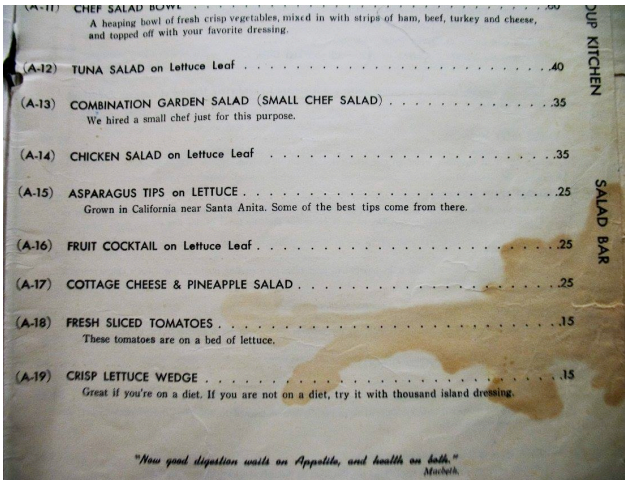 (A-11) CHEF SALAD BOWL .60
A heaping bowl of fresh crisp vegetables, mixed in with strips of ham, beef, turkey and cheese,
and topped off with your favorite dressing.
(A-12) TUNA SALAD on Lettuce Leaf . . . . . . . . . . . . . . . . . . . .40
(A-13) COMBINATION GARDEN SALAD (SMALL CHEF SALAD) . . . . . . . . . . .35
We hired a small chef just for this purpose.
(A-14) CHICKEN SALAD on Lettuce Leaf . . . . . . . . . . . . . . . . . . .35
(A-15) ASPARAGUS TIPS on LETTUCE . . . . . . . . . . . . . . . . . . . .25
Grown in California near Santa Anita. Some of the best tips come from there.
(A-16) FRUIT COCKTAIL on Lettuce Leaf . . . . . . . . . . . . . . . . . . .25
(A-17) COTTAGE CHEESE & PINEAPPLE SALAD . . . . . . . . . . . . . . . . .25
(A-18) FRESH SLICED TOMATOES . . . . . . . . . . . . . . . . . . . . . .15
These tomatoes are on a bed of lettuce.
(A-19) CRISP LETTUCE WEDGE . . . . . . . . . . . . . . . . . . . . . . .15
Great if you're on a diet. If you are not on a diet, try it with thousand island dressing.
"Now good digestion waits on Appetite, and health on both."
Macbeth.
OUP KITCHEN
SALAD BAR